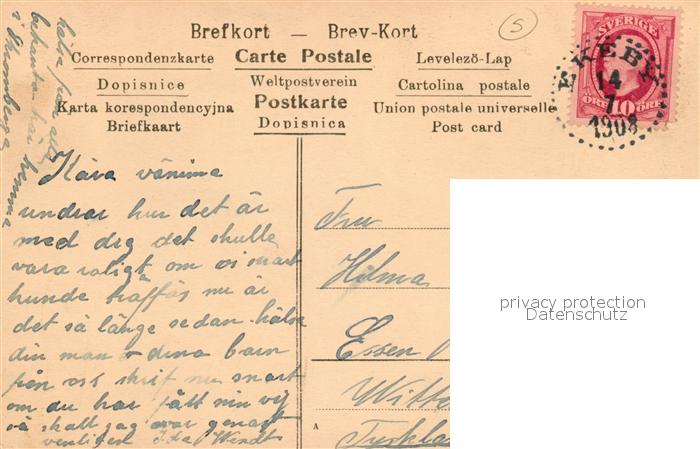 Brefkort — Brev-Kort
Correspondenzkarte Carte Postale Levelező-Lap
Dopisnice Weltpostverein Cartolina postale
Karta korespondencyjna Postkarte Union postale universelle
Briefkaart Dopisnica Post card
5
SVERIGE
10
ÖRE ÖRE
EKEBY
14
7
1908
hälsa från alla
bekanta här hemma
i
Kära väninna
undrar hur det är
med dig det skulle
vara roligt om vi snart
kunde träffas nu är
det så länge sedan hälsa
din man o dina barn
från oss skrif nu snart
om du har fått min vy
så skall jag svar genast
vänligen Ida Wendt
Fru
Hilma
Essen
Witt
Tyskla
A
privacy protection
Datenschutz